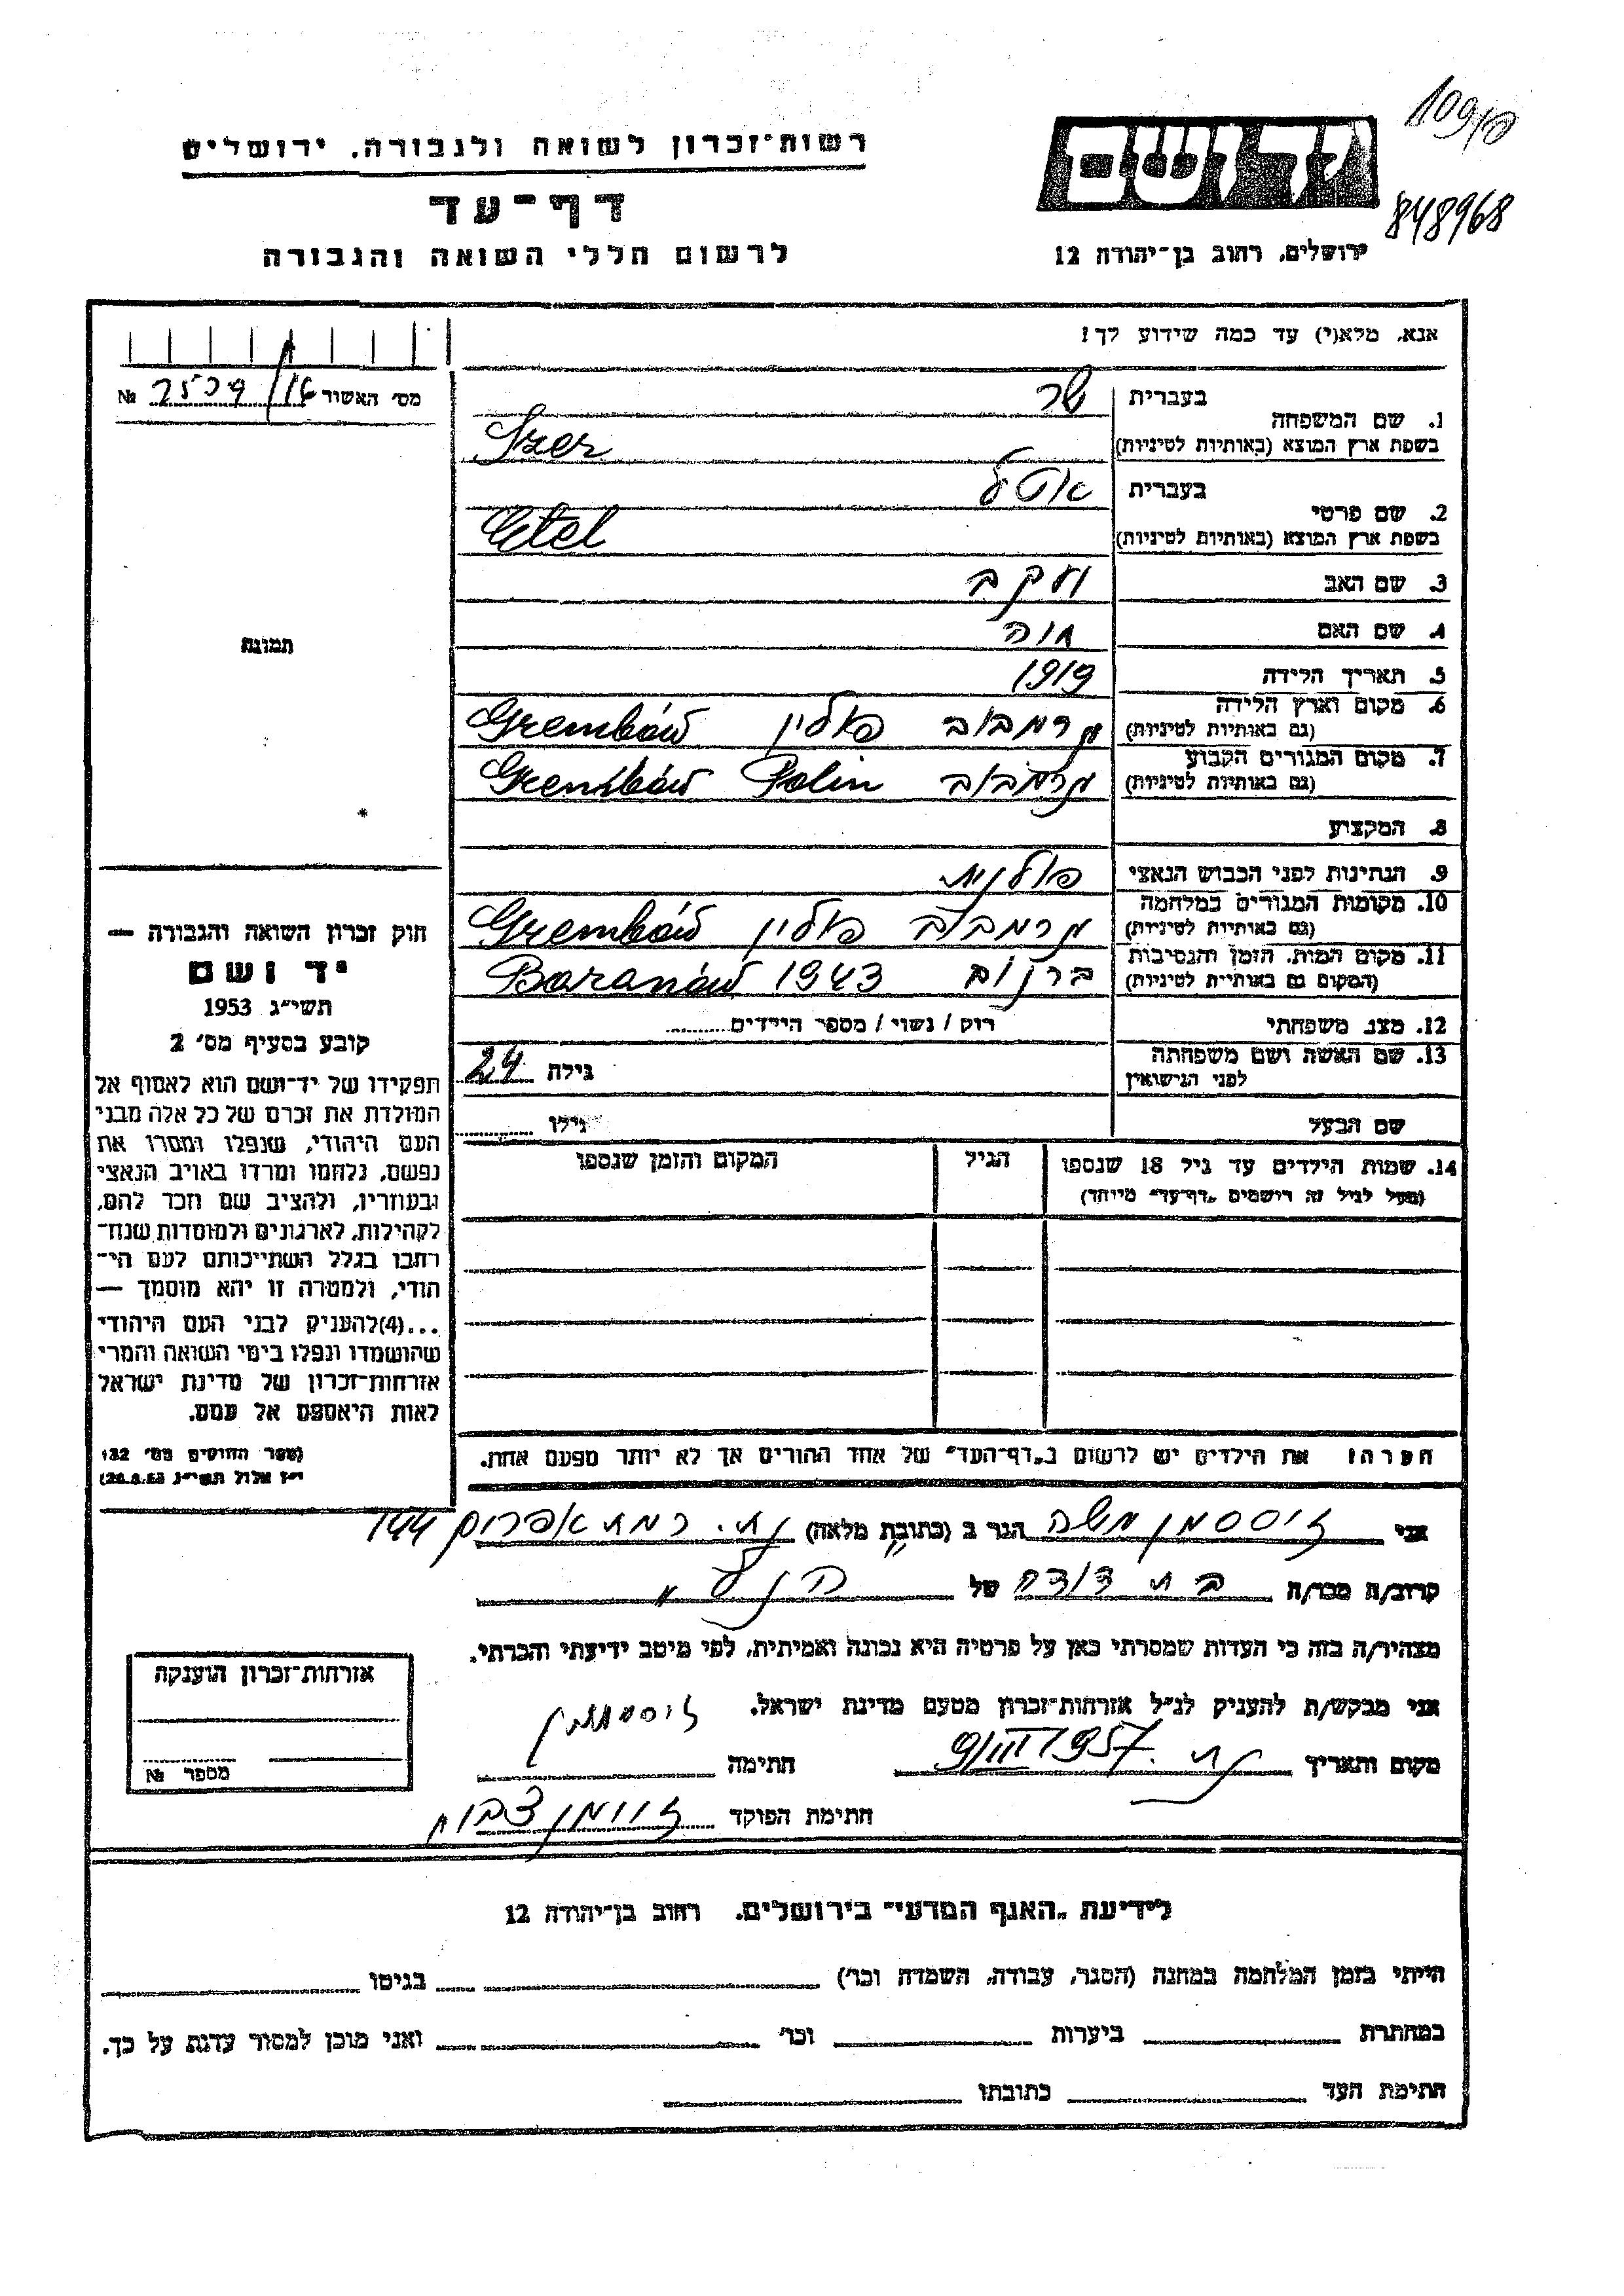 רשות-זכרון לשואה ולגבורה, ירושלים
דף-עד
לרשום חללי השואה והגבורה
ירושלים, רחוב בן-יהודה 12
848968
אנא, מלא(י) עד כמה שידוע לך!
מס' האשור
№
1. שם המשפחה
בעברית שר
בשפת ארץ המוצא (באותיות לטיניות) Szer
2. שם פרטי
בעברית אטל
בשפת ארץ המוצא (באותיות לטיניות) Etel
3. שם האב יעקב
4. שם האם חוה
5. תאריך הלידה 1919
6. מקום וארץ הלידה
(גם באותיות לטיניות) פולין Grembów
7. מקום המגורים הקבוע
(גם באותיות לטיניות) Polin Grembów
8. המקצוע
9. הנתינות לפני הכבוש הנאצי פולנית
10. מקומות המגורים במלחמה
(גם באותיות לטיניות) פולין Grembów
11. מקום המות, הזמן והנסיבות
(המקום גם באותיות לטיניות) ברנוב 1943 Baranów
12. מצב משפחתי רוק / נשוי / מספר הילדים
13. שם האשה ושם משפחתה
לפני הנישואין גילה 24
שם הבעל גילו
14. שמות הילדים עד גיל 18 שנספו
(מעל לגיל זה רושמים "דף-עד" מיוחד)
הגיל
המקום והזמן שנספו
הערה: את הילדים יש לרשום ב"דף-העד" של אחד ההורים אך לא יותר מפעם אחת.
תמונה
חוק זכרון השואה והגבורה —
יד ושם
תשי"ג 1953
קובע בסעיף מס' 2
תפקידו של יד-ושם הוא לאסוף אל
המולדת את זכרם של כל אלה מבני
העם היהודי, שנפלו ומסרו את
נפשם, נלחמו ומרדו באויב הנאצי
ובעוזריו, ולהציב שם וזכר להם,
לקהילות, לארגונים ולמוסדות שנח-
רבו בגלל השתייכותם לעם הי-
הודי, ולמטרה זו יהא מוסמך —
...(4)להעניק לבני העם היהודי
שהושמדו ונפלו בימי השואה והמרי
אזרחות-זכרון של מדינת ישראל
לאות היאספם אל עמם.
(ספר החוקים מס' 132
י"ז אלול תשי"ג 28.8.53)
אני זוסמן משה הגר ב (כתובת מלאה) נת. רמת אפרים 144
קרוב/ה מכר/ה בת דודה של הנ"ל
מצהיר/ה בזה כי העדות שמסרתי כאן על פרטיה היא נכונה ואמיתית, לפי מיטב ידיעתי והכרתי.
אני מבקש/ת להעניק לנ"ל אזרחות-זכרון מטעם מדינת ישראל.
מקום ותאריך נת. 9/III 1957 חתימה
חתימת הפוקד
אזרחות-זכרון הוענקה
מספר №
לידיעת "האגף המדעי" בירושלים, רחוב בן-יהודה 12
הייתי בזמן המלחמה במחנה (הסגר, עבודה, השמדה וכו') בגיטו
במחתרת ביערות וכו' ואני מוכן למסור עדות על כך.
חתימת העד כתובתו